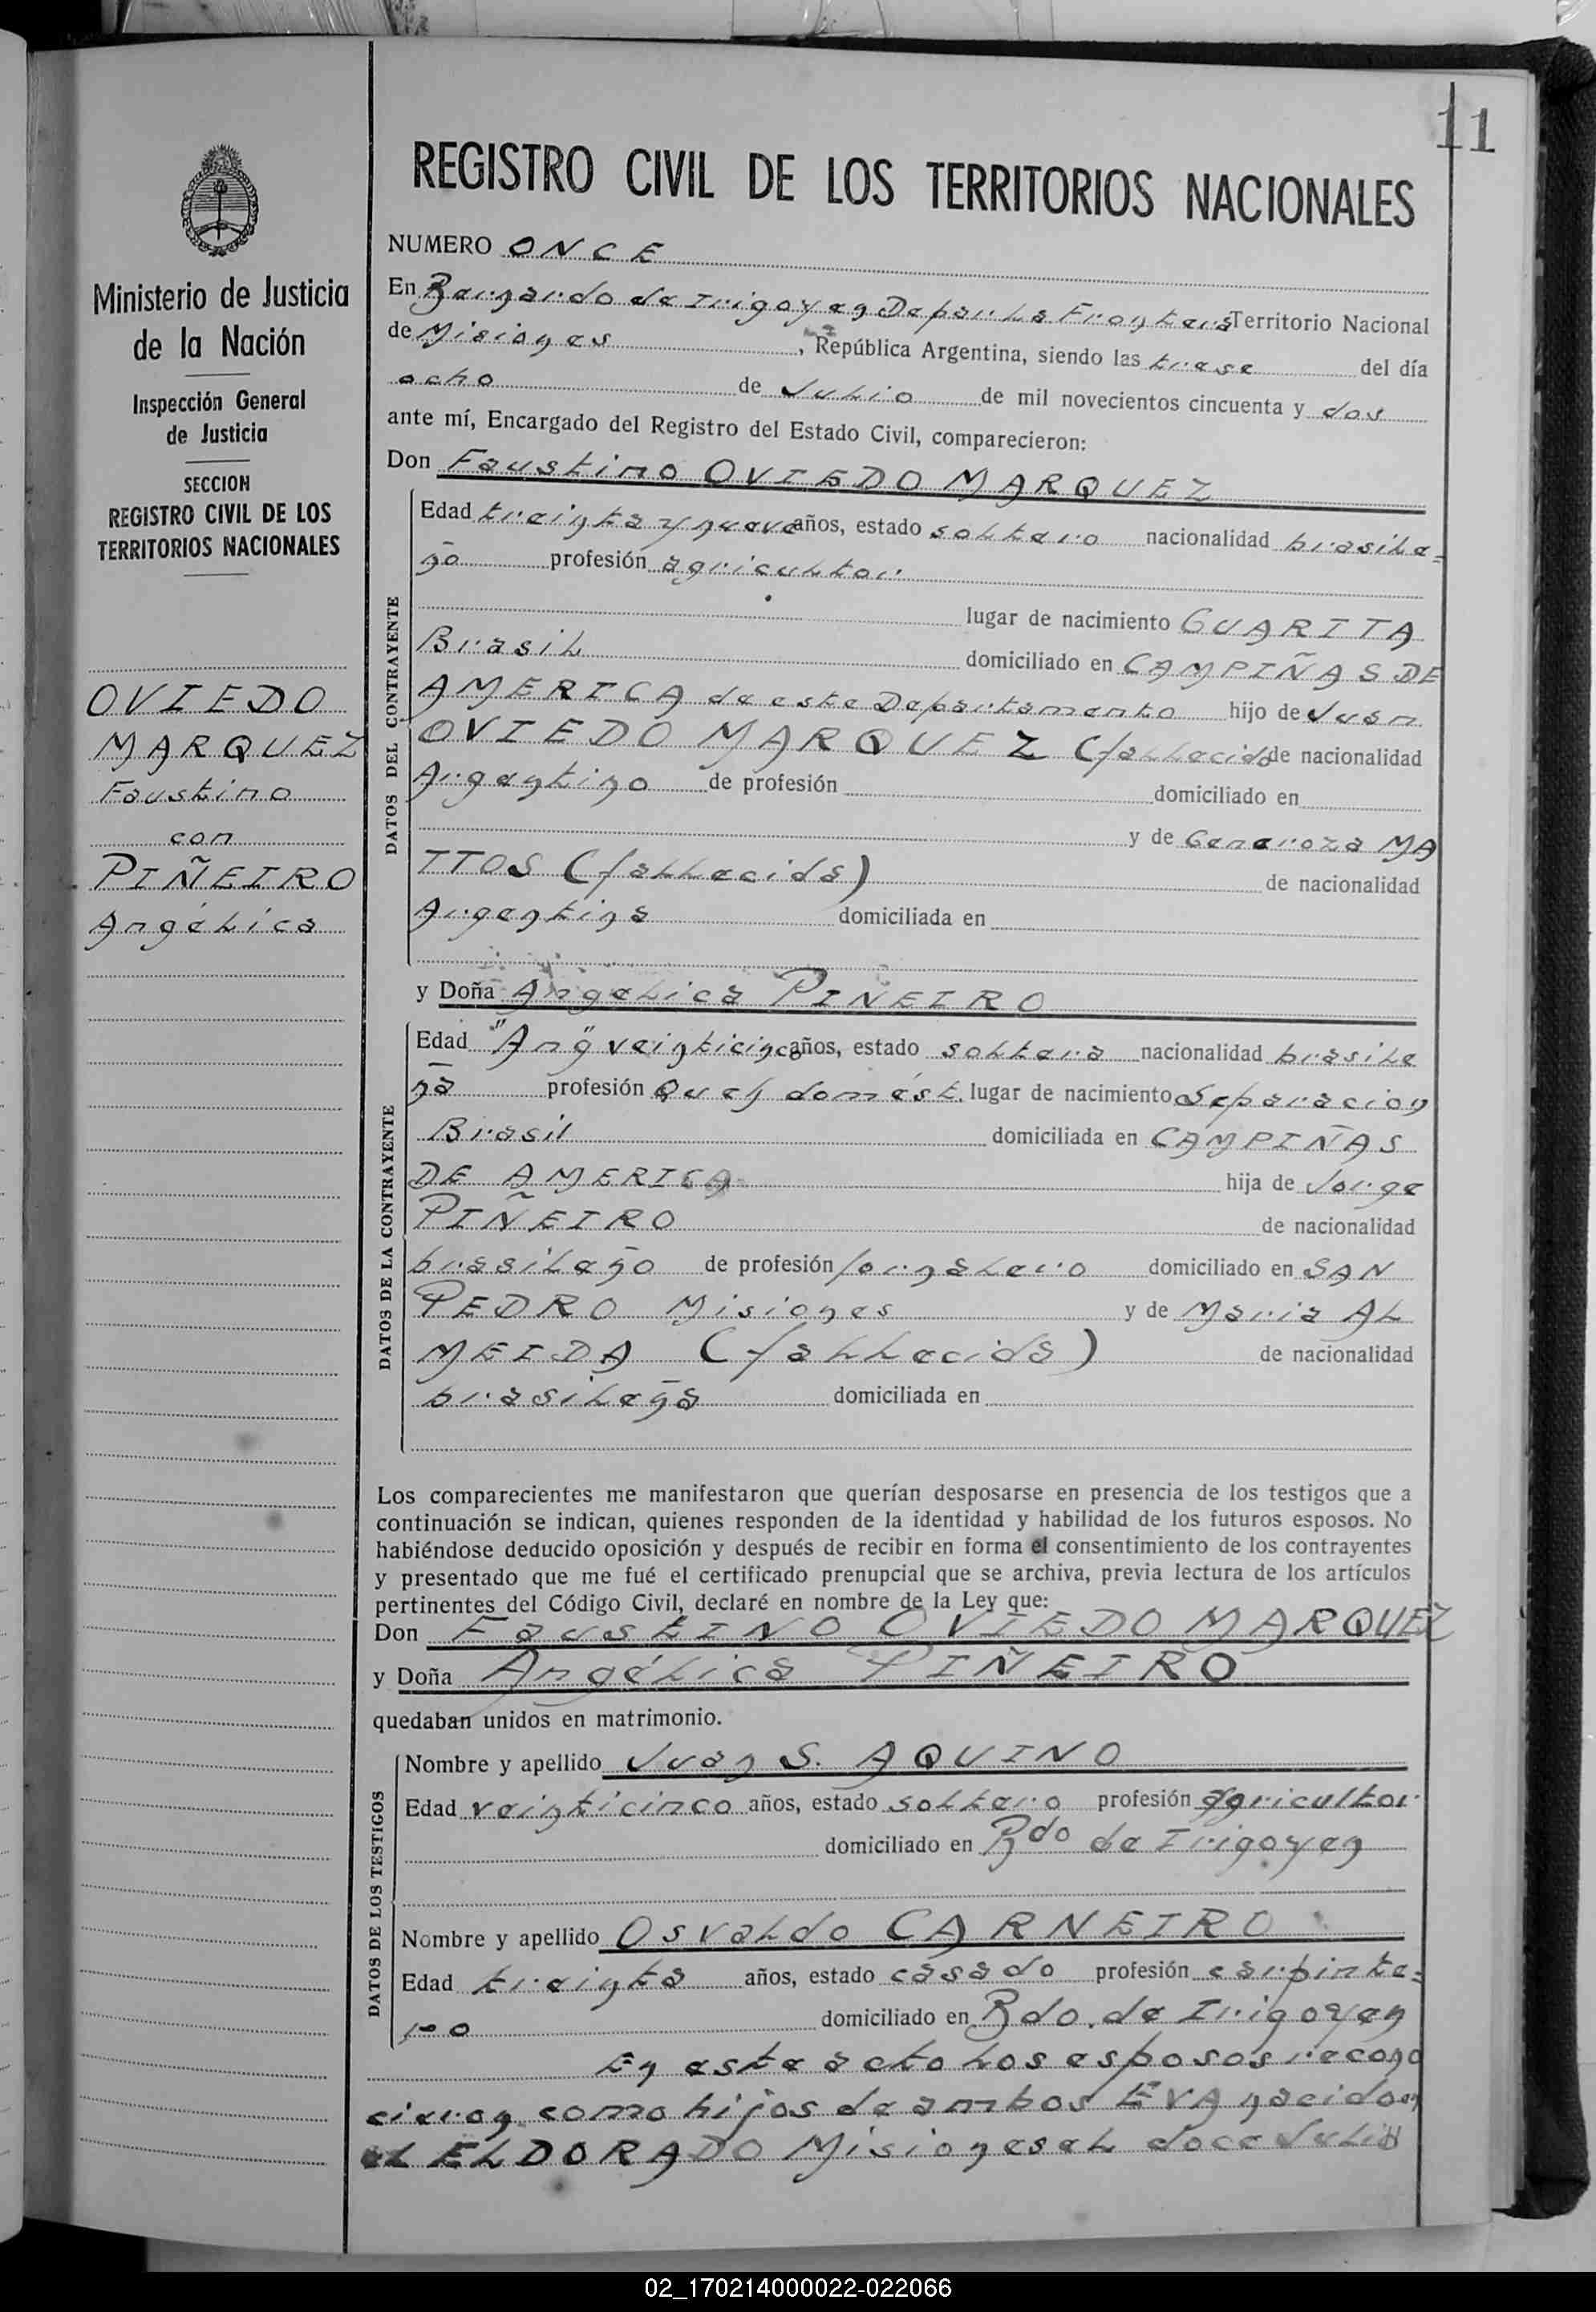 11
REGISTRO CIVIL DE LOS TERRITORIOS NACIONALES
Ministerio de Justicia
de la Nación
Inspección General
de Justicia
SECCION
REGISTRO CIVIL DE LOS
TERRITORIOS NACIONALES
OVIEDO
MARQUEZ
Faustino
con
PIÑEIRO
Angélica
NUMERO ONCE
En Bernardo de Irigoyen Depar La Frontera Territorio Nacional
de Misiones, República Argentina, siendo las trese del día
ocho de Julio de mil novecientos cincuenta y dos
ante mí, Encargado del Registro del Estado Civil, comparecieron:
Don Faustino OVIEDO MARQUEZ
DATOS DEL CONTRAYENTE
Edad treinta y nueve años, estado soltero nacionalidad brasile=
ño profesión agricultor
lugar de nacimiento GUARITA
Brasil domiciliado en CAMPIÑAS DE
AMERICA de este Departamento hijo de Juan
OVIEDO MARQUEZ (fallecido de nacionalidad
Argentino de profesión domiciliado en
y de Generoza MA
TTOS (fallecida) de nacionalidad
Argentina domiciliada en
y Doña Angelica PIÑEIRO
DATOS DE LA CONTRAYENTE
Edad "Ang" veinticinco años, estado soltera nacionalidad brasile
ña profesión Queh domést. lugar de nacimiento Separacion
Brasil domiciliada en CAMPIÑAS
DE AMERICA hija de Jorge
PIÑEIRO de nacionalidad
brasileño de profesión jornalero domiciliado en SAN
PEDRO Misiones y de Maria AL
MEIDA (fallecida) de nacionalidad
brasileña domiciliada en
Los comparecientes me manifestaron que querían desposarse en presencia de los testigos que a
continuación se indican, quienes responden de la identidad y habilidad de los futuros esposos. No
habiéndose deducido oposición y después de recibir en forma el consentimiento de los contrayentes
y presentado que me fué el certificado prenupcial que se archiva, previa lectura de los artículos
pertinentes del Código Civil, declaré en nombre de la Ley que:
Don FausTINO OVIEDO MARQUEZ
y Doña Angélica PIÑEIRO
quedaban unidos en matrimonio.
DATOS DE LOS TESTIGOS
Nombre y apellido Juan S. AQUINO
Edad veinticinco años, estado soltero profesión agricultor
domiciliado en Bdo de Irigoyen
Nombre y apellido Osvaldo CARNEIRO
Edad treinta años, estado casado profesión carpinte=
ro domiciliado en Bdo. de Irigoyen
En este acto los esposos recono
cieron como hijos de ambos EVA nacido en
el ELDORADO Misiones el doce Julio
02_170214000022-022066